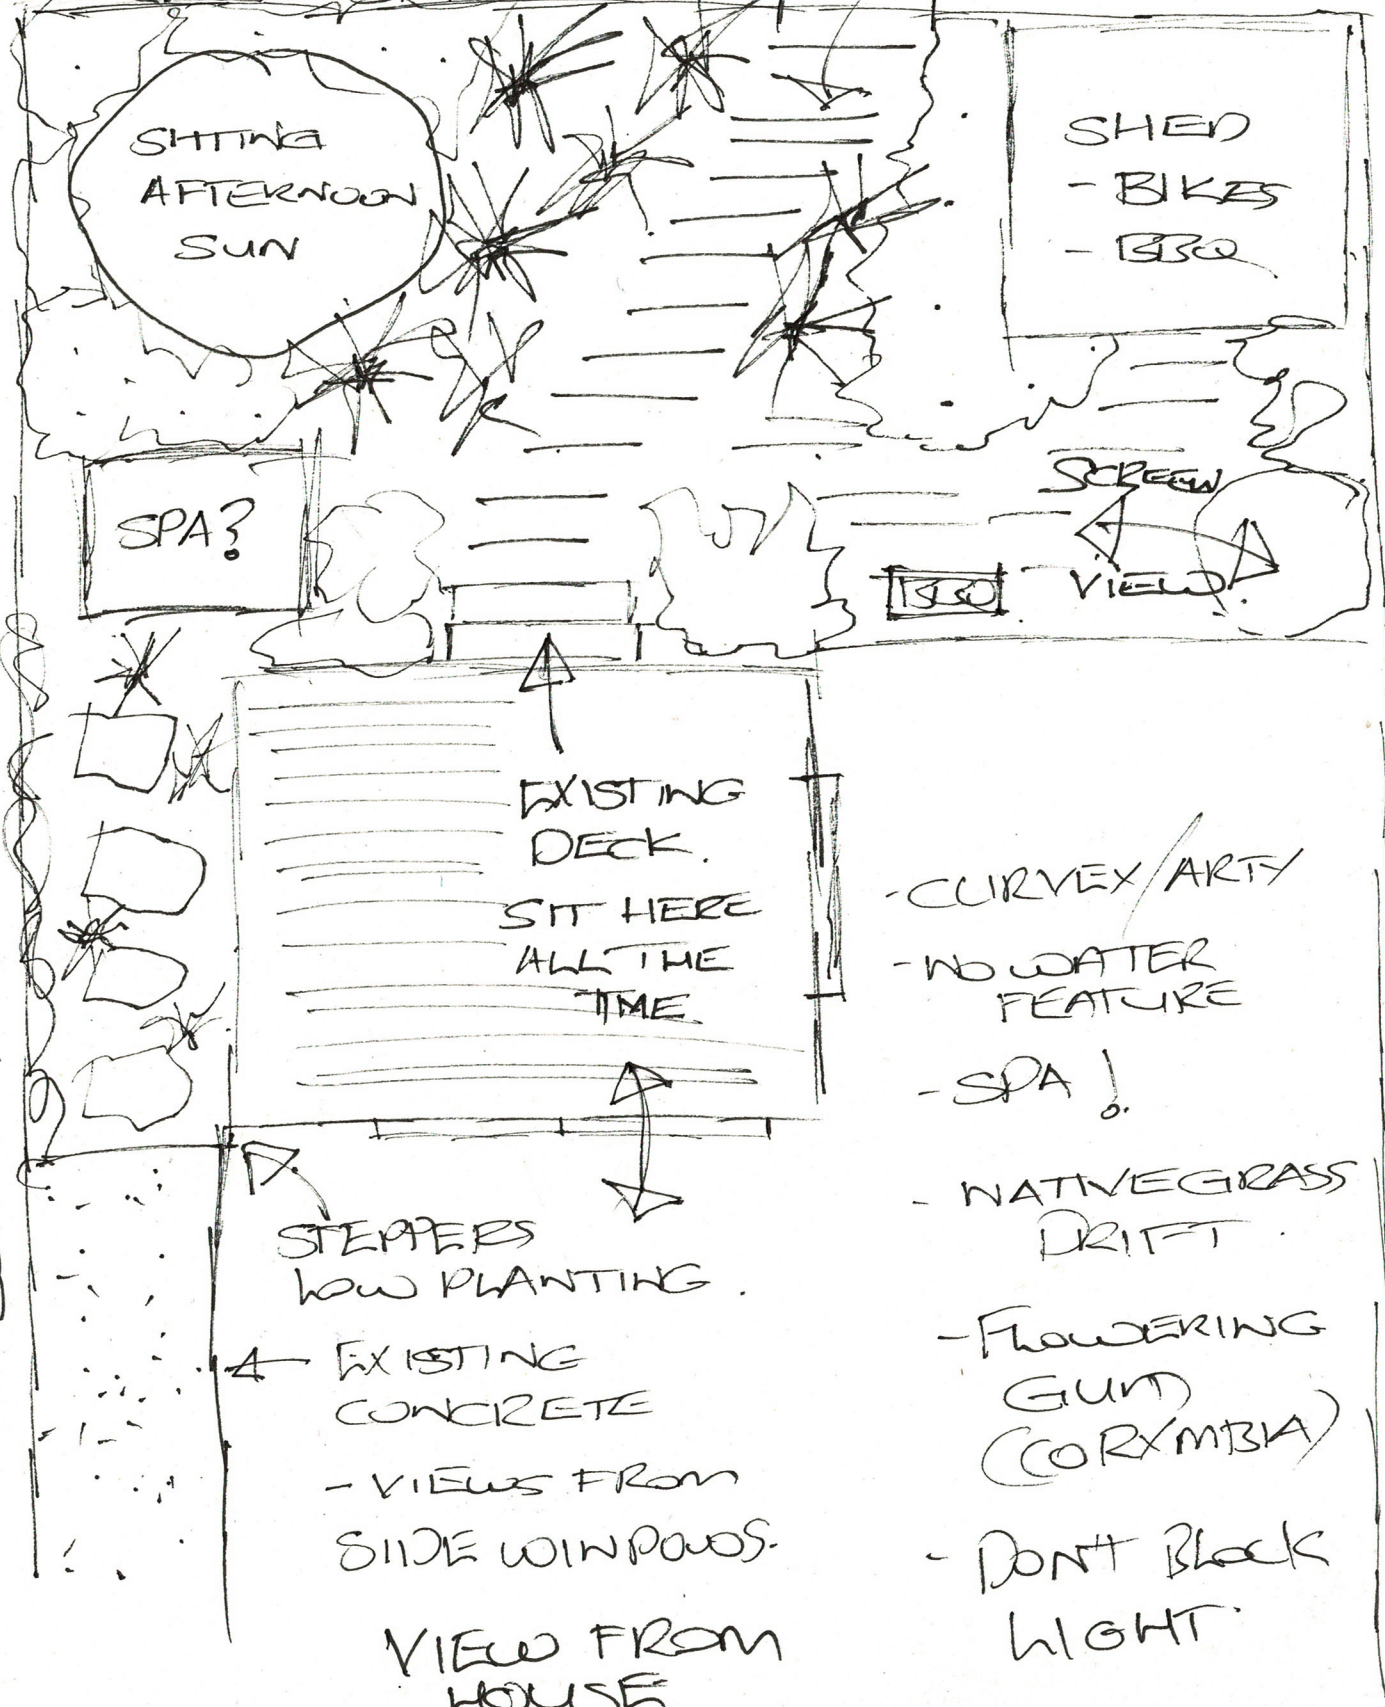 SITTING
AFTERNOON
SUN
SHED
- BIKES
- BBQ
SPA?
SCREEN
VIEW
BBQ
EXISTING
DECK.
SIT HERE
ALL THE
TIME
- CURVEY/ARTY
- NO WATER
FEATURE
- SPA!
- NATIVE GRASS
DRIFT.
- FLOWERING
GUM
(CORYMBIA)
- DON'T BLOCK
LIGHT.
STEPPERS
LOW PLANTING.
EXISTING
CONCRETE
- VIEWS FROM
SIDE WINDOWS.
VIEW FROM
HOUSE